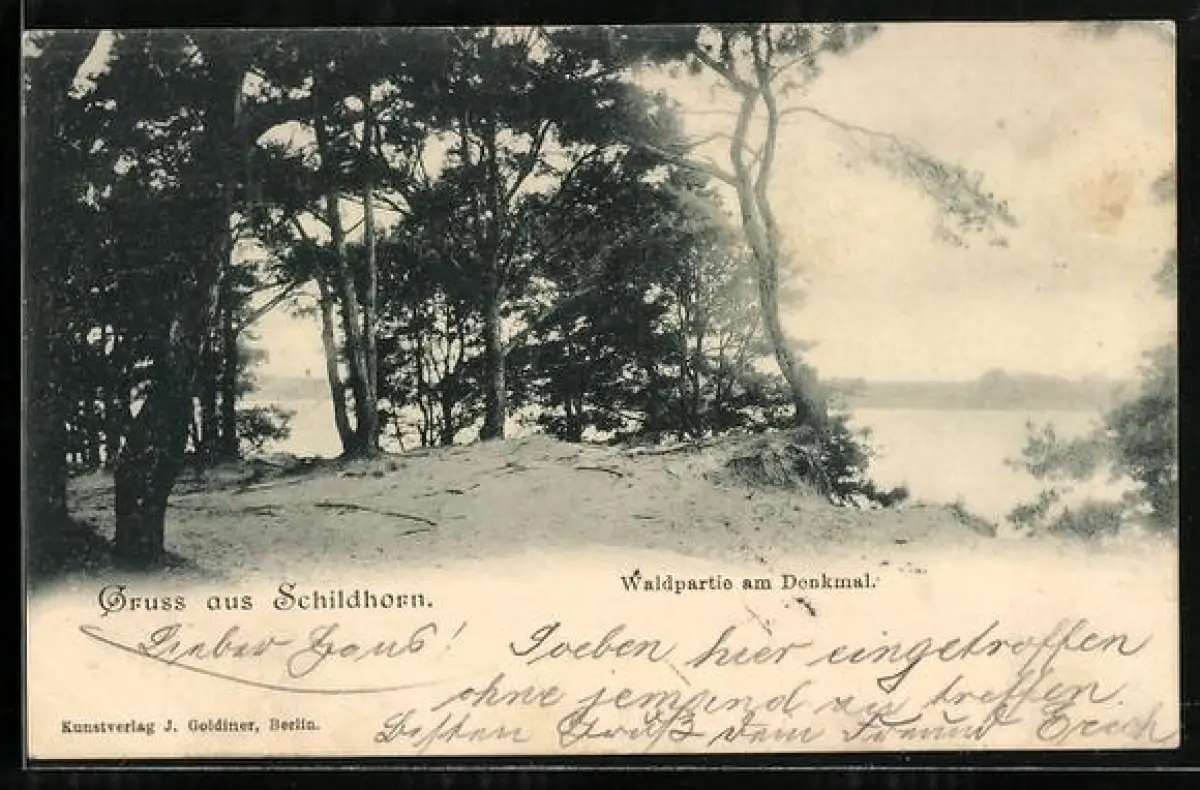 Waldpartie am Denkmal.
Gruss aus Schildhorn.
Lieber ! Soeben hier eingetroffen
ohne jemand zu treffen
Kunstverlag J. Goldiner, Berlin.
Besten Gruß dein Freund Erich